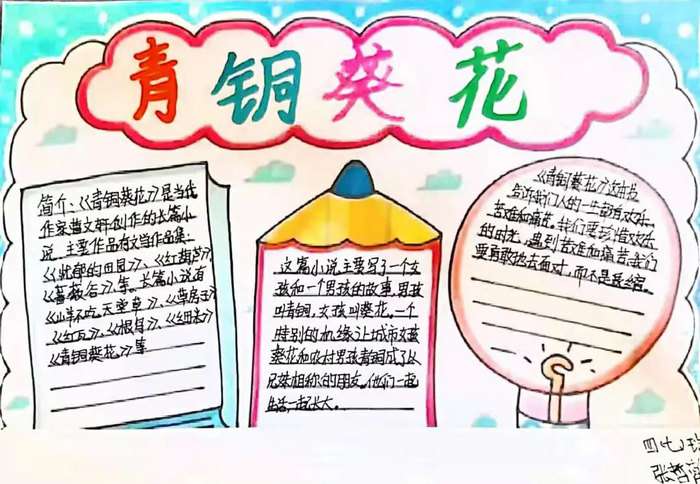 青铜葵花
简介:《青铜葵花》是当代
作家曹文轩创作的长篇小
说,主要作品有文学作品集:
《忧郁的田园》、《红葫芦》
《蔷薇谷》等。长篇小说有
《山羊不吃天堂草》、《草房子》
《红瓦》、《根鸟》、《细米》
《青铜葵花》等
这篇小说主要写了一个女
孩和一个男孩的故事,男孩
叫青铜,女孩叫葵花。一个
特别的机缘让城市女孩
葵花和农村男孩青铜成了以
兄妹相称的朋友。他们一起
生活,一起长大。
《青铜葵花》这本书
告诉我们人的一生都有欢乐、
苦难和痛苦。我们要珍惜欢乐
的时光,遇到苦难和痛苦我们
要勇敢地去面对,而不是畏缩。
四七班
张哲